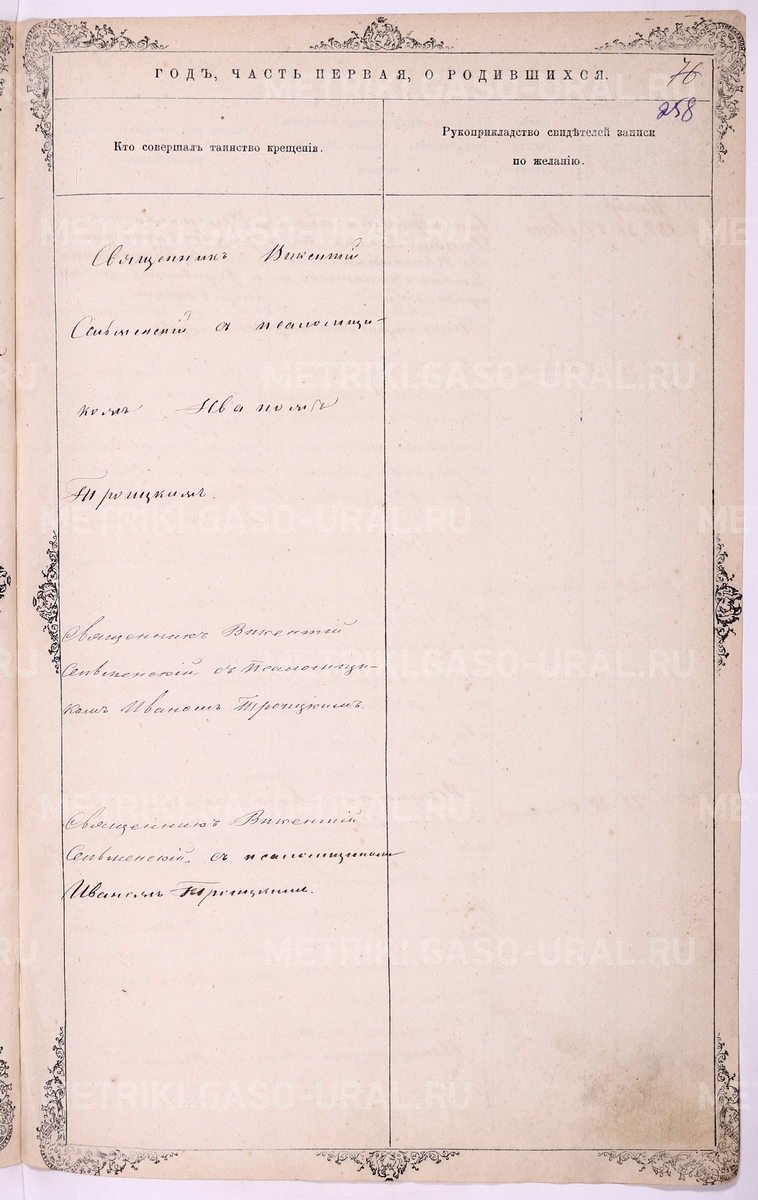 ГОДЪ, ЧАСТЬ ПЕРВАЯ, О РОДИВШИХСЯ.
76
258
Кто совершалъ таинство крещенія.
Рукоприкладство свидѣтелей записи
по желанію.
Священникъ Викентій
съ псаломщи-
комъ Иваномъ
Троицкимъ.
Священникъ Викентій
съ Псаломщи-
комъ Иваномъ Троицкимъ.
Священникъ Викентій
съ псаломщикомъ
Иваномъ Троицкимъ.
METRIKI.GASO-URAL.RU